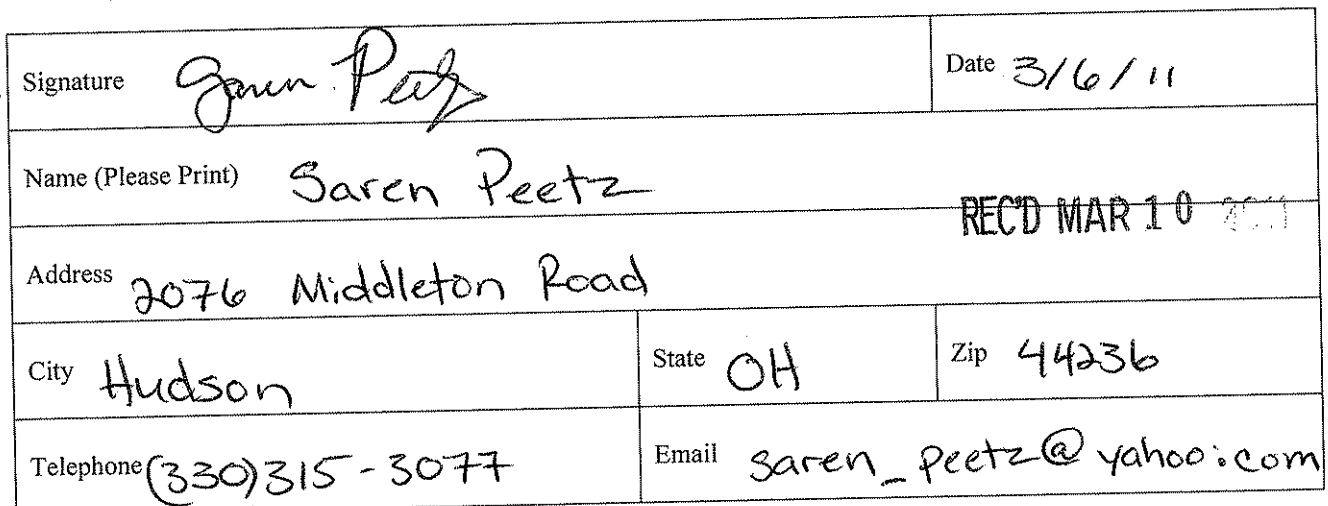 Signature Saren Peetz Date 3/6/11
Name (Please Print) Saren Peetz
REC'D MAR 10 2011
Address 2076 Middleton Road
City Hudson State OH Zip 44236
Telephone (330)315-3077 Email saren_peetz@yahoo.com